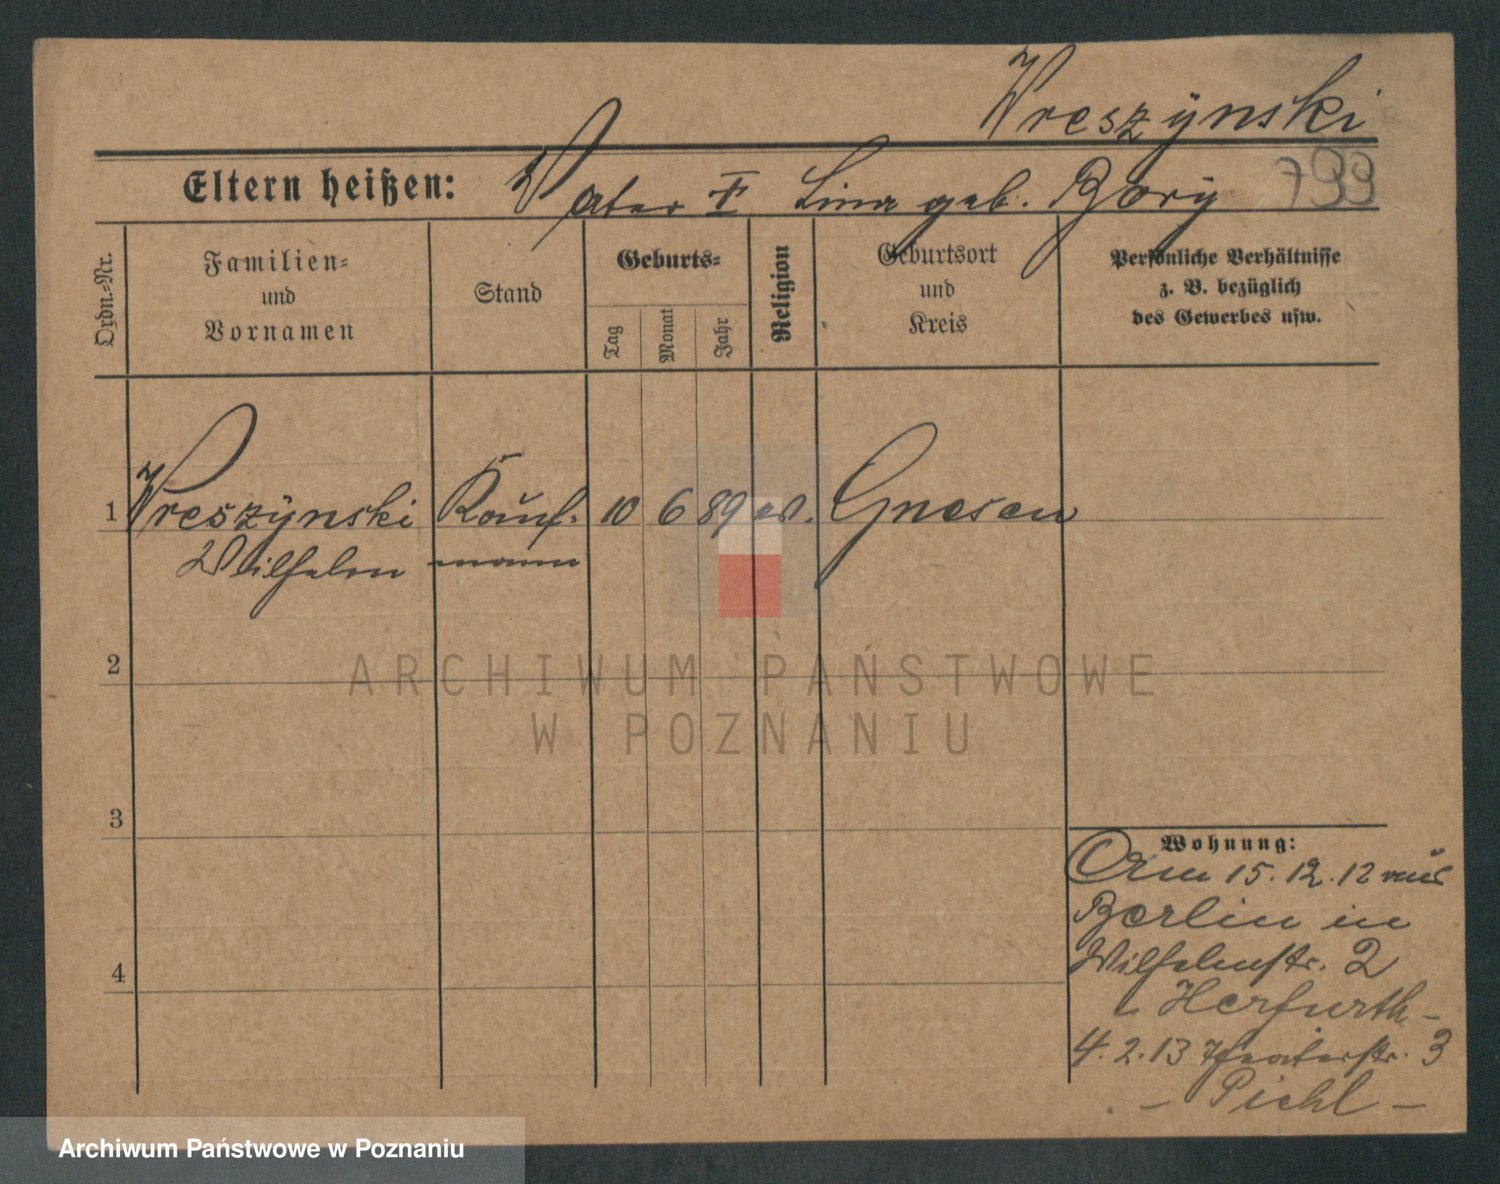 Wreszÿnski
Eltern heißen: Vater † Lina geb. Bory 799
Ordn.-Nr.
Familien-
und
Vornamen
Stand
Geburts-
Tag
Monat
Jahr
Religion
Geburtsort
und
Kreis
Persönliche Verhältnisse
z. B. bezüglich
des Gewerbes usw.
1 Wreszÿnski Kauf- 10 6 89 ev. Gnesen
Wilhelm mann
2
3
4
Wohnung:
Am 15.12.12 aus
Berlin in
Wilhelmstr. 2
b. Herfurth -
4.2.13 Theaterstr. 3
- Piehl -
ARCHIWUM PAŃSTWOWE
W POZNANIU
Archiwum Państwowe w Poznaniu